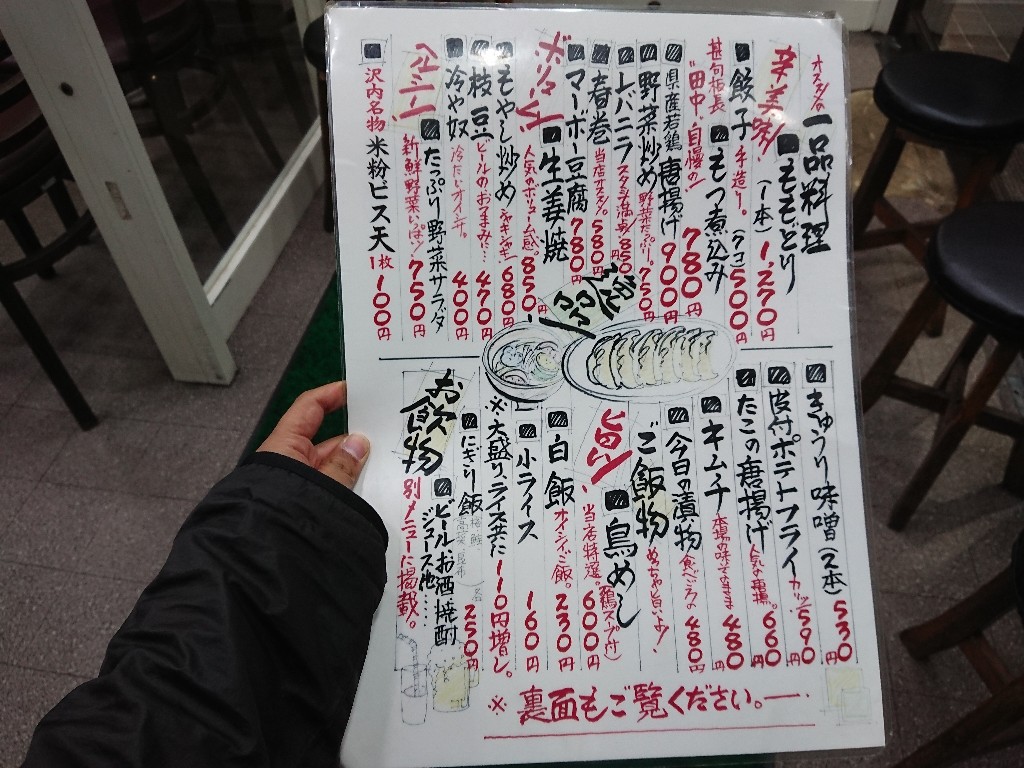 一品料理
オススメ
そそどり (1本) 1,270円
辛美味!
餃子 手造り。(7コ) 500円
甚句板長
もつ煮込み 780円
"田中"自慢の!
県産若鶏 唐揚げ 900円
野菜炒め 野菜たっぷり。750円
レバニラ スタミナ満点! 850円
春巻 当店オススメ。580円
マーボー豆腐 780円
ボリューム!
生姜焼 人気のボリューム感。850円
もやし炒め シャキシャキ! 680円
枝豆 ビールのおつまみに… 470円
冷や奴 冷たいオイシサ。400円
ヘルシー!
たっぷり野菜サラダ 新鮮野菜いっぱい! 750円
沢内名物 米粉ビス天 1枚 100円
逸品
きゅうり味噌(2本) 530円
皮付ポテトフライ 590円
たこの唐揚げ 人気な唐揚。660円
キムチ 本場の味そのまま 480円
今日の漬物 食べごろな 480円
ご飯物 めっちゃ旨いよ!
旨い!
鳥めし 当店特選。(鶏スープ付) 600円
白飯 オイシイご飯。230円
小ライス 160円
※大盛り、ライス共に110円増し。
にぎり飯 250円
お飲物
ビール お酒 焼酎
ジュース他……
別メニューに掲載。
※裏面もご覧ください。